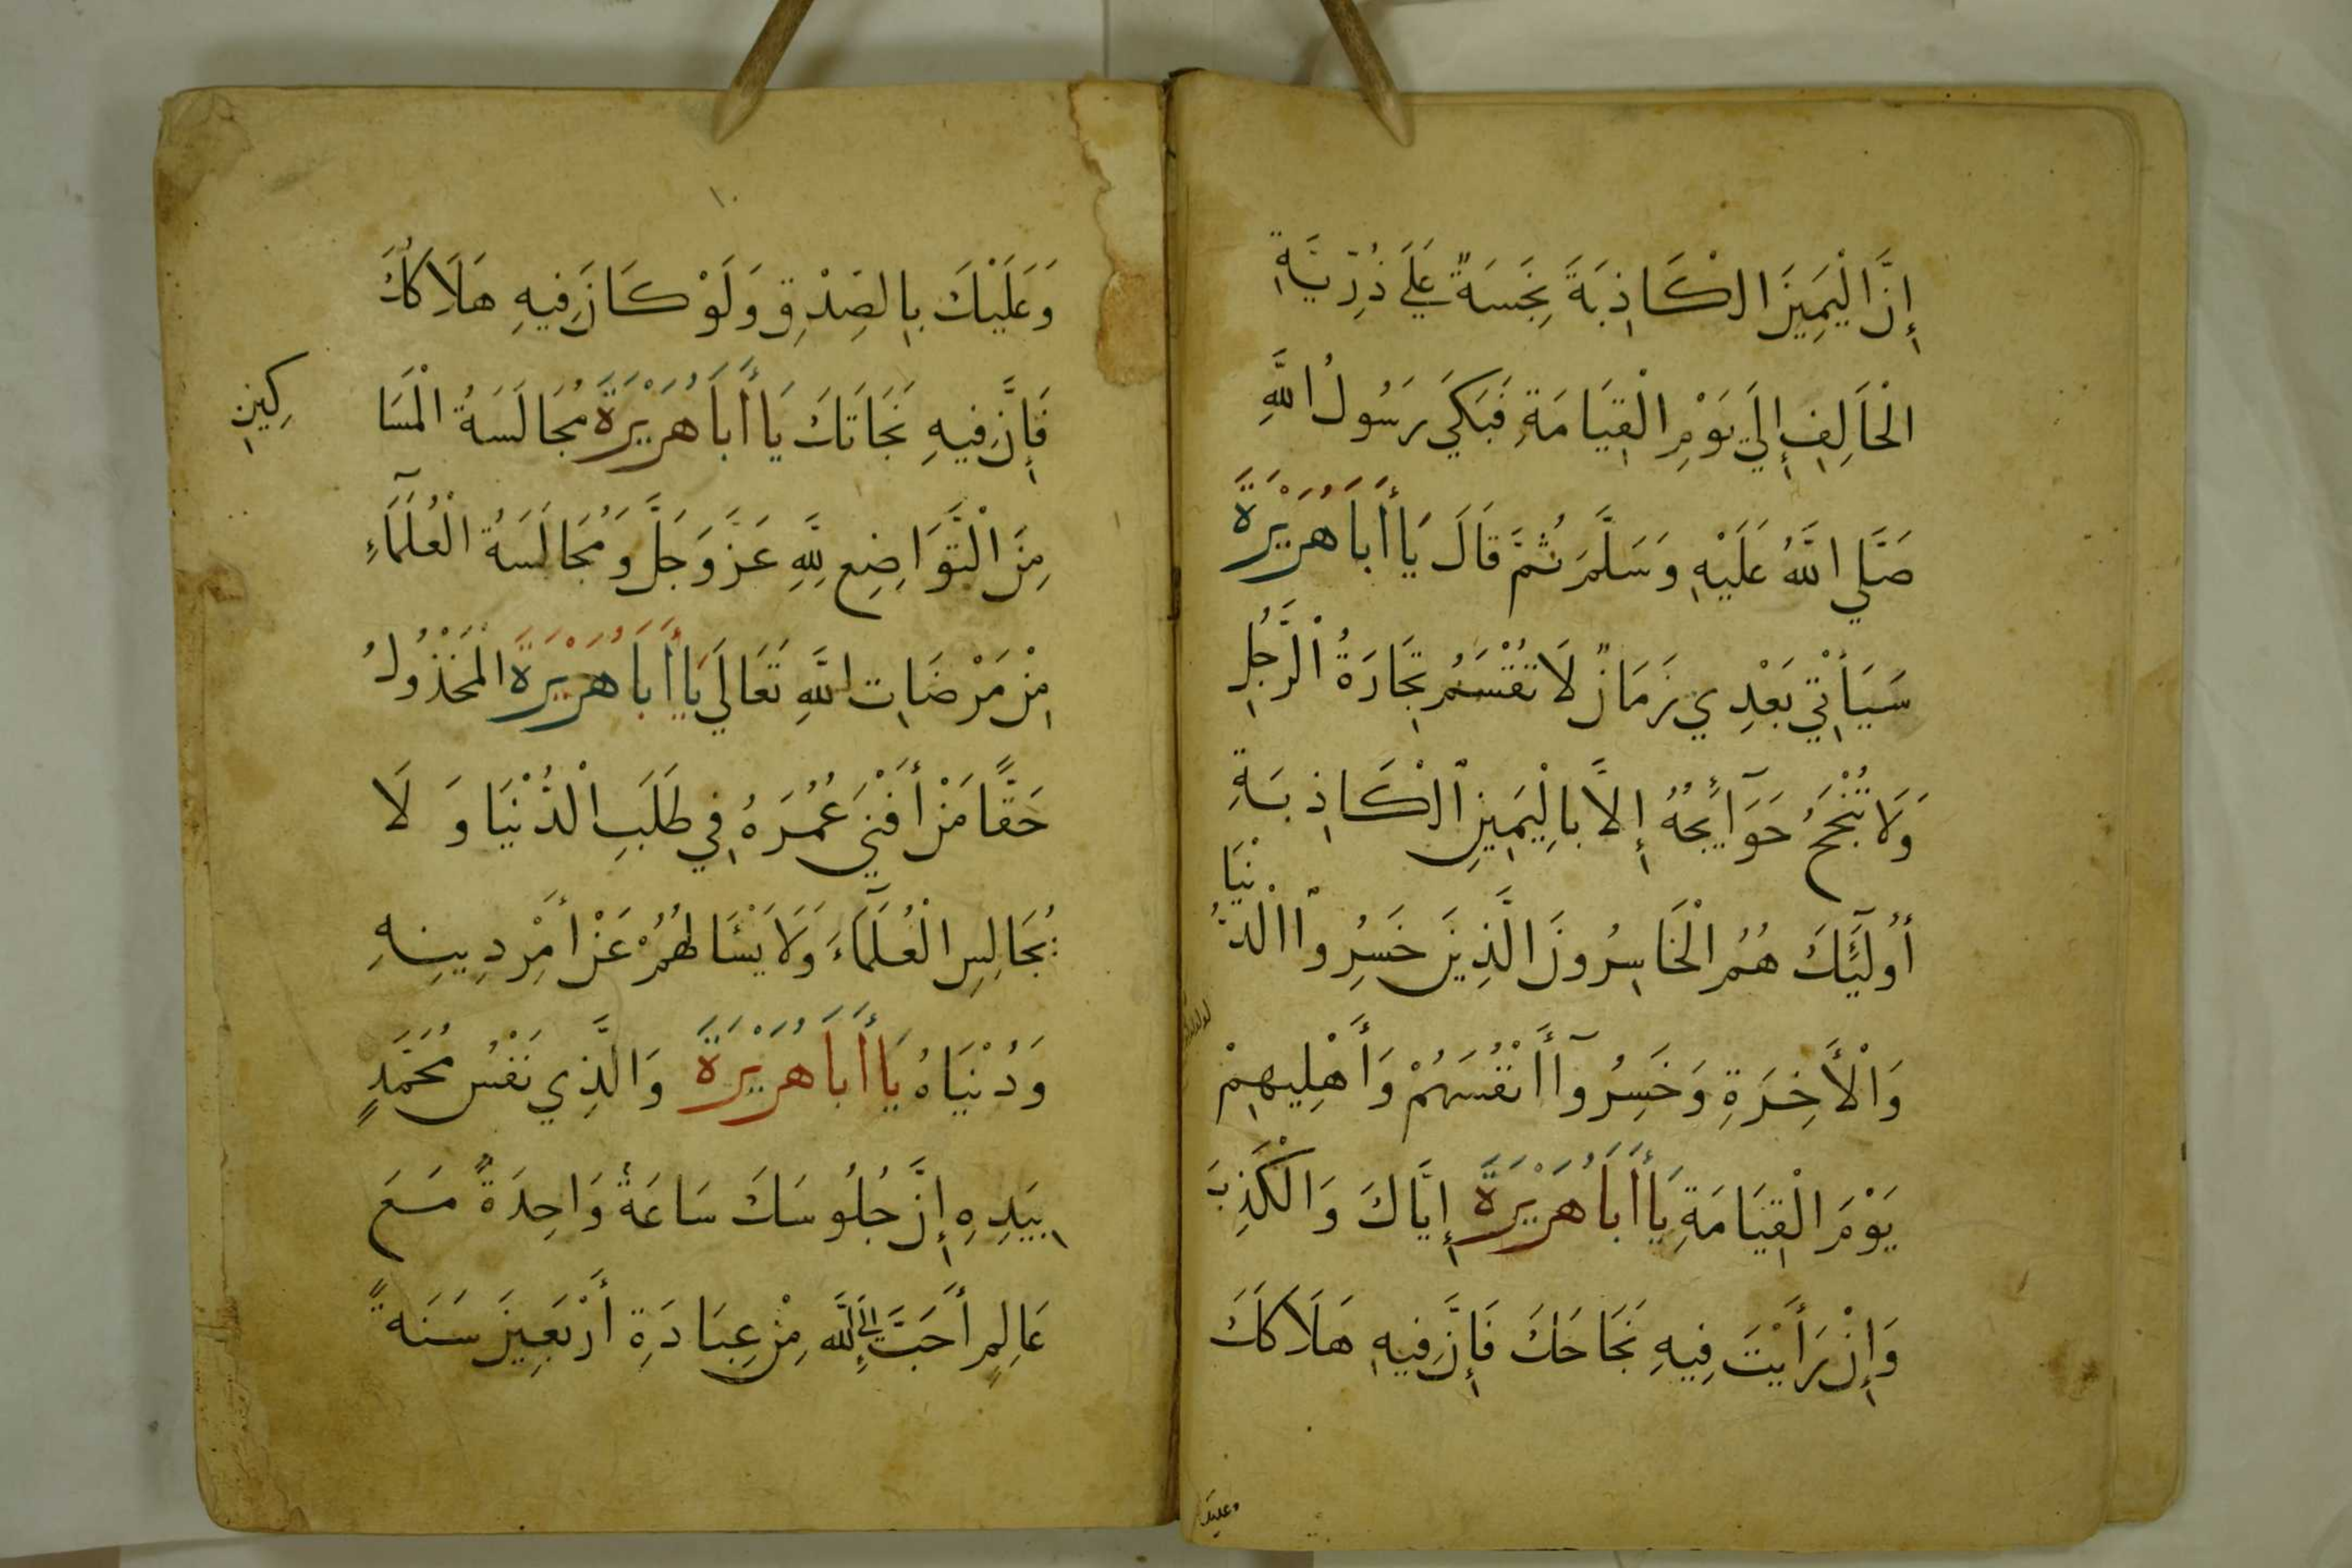 إِنَّ الْيَمِينَ الْكَاذِبَةَ نَجِسَةٌ عَلَى ذُرِّيَّةِ
الْحَالِفِ إِلَى يَوْمِ الْقِيَامَةِ فَبَكَى رَسُولُ اللَّهِ
صَلَّى اللَّهُ عَلَيْهِ وَسَلَّمَ ثُمَّ قَالَ يَا أَبَا هُرَيْرَةَ
سَيَأْتِي بَعْدِي زَمَانٌ لَا تُقْسَمُ تِجَارَةُ الرَّجُلِ
وَلَا تُنْجَحُ حَوَآئِجُهُ إِلَّا بِالْيَمِينِ الْكَاذِبَةِ
أُولَٓئِكَ هُمُ الْخَاسِرُونَ الَّذِينَ خَسِرُوا الدُّنْيَا
وَالْأَخِرَةِ وَخَسِرُوآ أَنْفُسَهُمْ وَأَهْلِيهِمْ
يَوْمَ الْقِيَامَةِ يَا أَبَا هُرَيْرَةَ إِيَّاكَ وَالْكَذِبَ
وَإِنْ رَأَيْتَ فِيهِ نَجَاحَكَ فَإِنَّ فِيهِ هَلَاكَكَ
وعليك
١٠
وَعَلَيْكَ بِالصِّدْقِ وَلَوْ كَانَ فِيهِ هَلَاكُكَ
فَإِنَّ فِيهِ نَجَاتَكَ يَا أَبَا هُرَيْرَةَ مُجَالَسَةُ الْمَسَا
كِينِ
مِنَ الْتَّوَاضِعِ لِلَّهِ عَزَّ وَجَلَّ وَمُجَالَسَةُ الْعُلَمَآءِ
مِنْ مَرْضَاتِ اللَّهِ تَعَالَى يَا أَبَا هُرَيْرَةَ الْمَخْذُولُ
حَقًّا مَنْ أَفْنَى عُمُرَهُ فِي طَلَبِ الْدُّنْيَا وَلَا
يُجَالِسِ الْعُلَمَآءَ وَلَا يَسْئَالُهُمْ عَنْ أَمْرِ دِينِهِ
وَدُنْيَاهُ يَا أَبَا هُرَيْرَةَ وَالَّذِي نَفْسُ مُحَمَّدٍ
بِيَدِهِ إِنَّ جُلُوسَكَ سَاعَةً وَاحِدَةً مَعَ
عَالِمٍ أَحَبَّ إِلَى اللَّهِ مِنْ عِبَادَةِ أَرْبَعِينَ سَنَةً